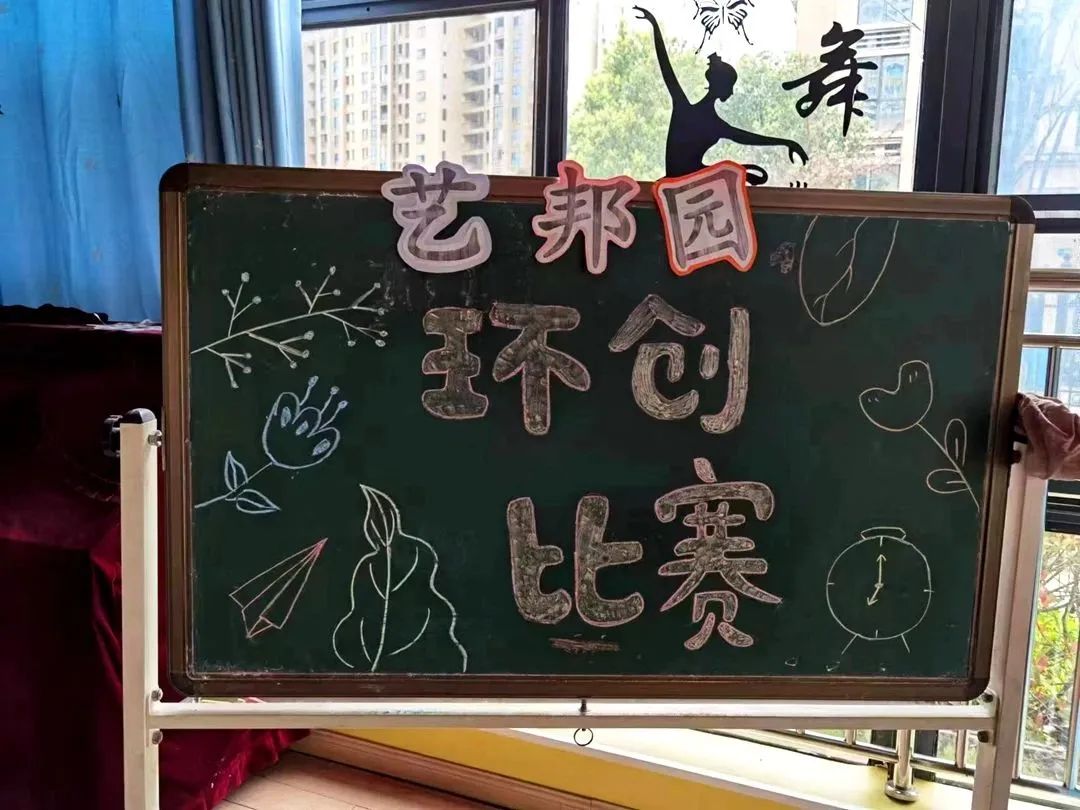 舞
艺邦园
环创
比赛